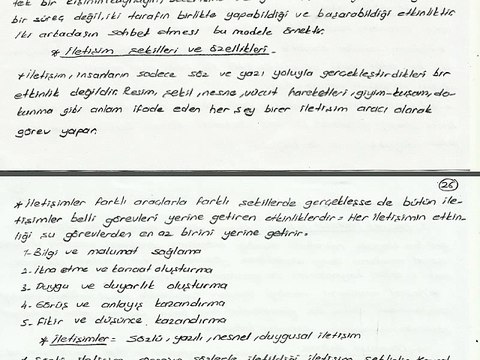 tek bir kişinin
bir süreç değil, iki tarafın birlikte yapabildiği ve başarabildiği etkinliktir
iki arkadaşın sohbet etmesi bu modele örnektir.
* İletişim şekilleri ve özellikleri.
* iletişim, insanların sadece söz ve yazı yoluyla gerçekleştirdikleri bir
etkinlik değildir. Resim, şekil, nesne, vücut hareketleri, giyim-kuşam, do-
kunma gibi anlam ifade eden her şey birer iletişim aracı olarak
görev yapar.
26
* iletişimler farklı araçlarla farklı şekillerde gerçekleşse de bütün ile-
tişimler belli görevleri yerine getiren etkinliklerdir. Her iletişimin etkin-
liği şu görevlerden en az birini yerine getirir.
1- Bilgi ve malumat sağlama
2- ikna etme ve kanaat oluşturma
3- Duygu ve duyarlık oluşturma
4- Görüş ve anlayış kazandırma
5- Fikir ve düşünce kazandırma
* İletişimler = sözlü, yazılı, nesnel, duygusal iletişim